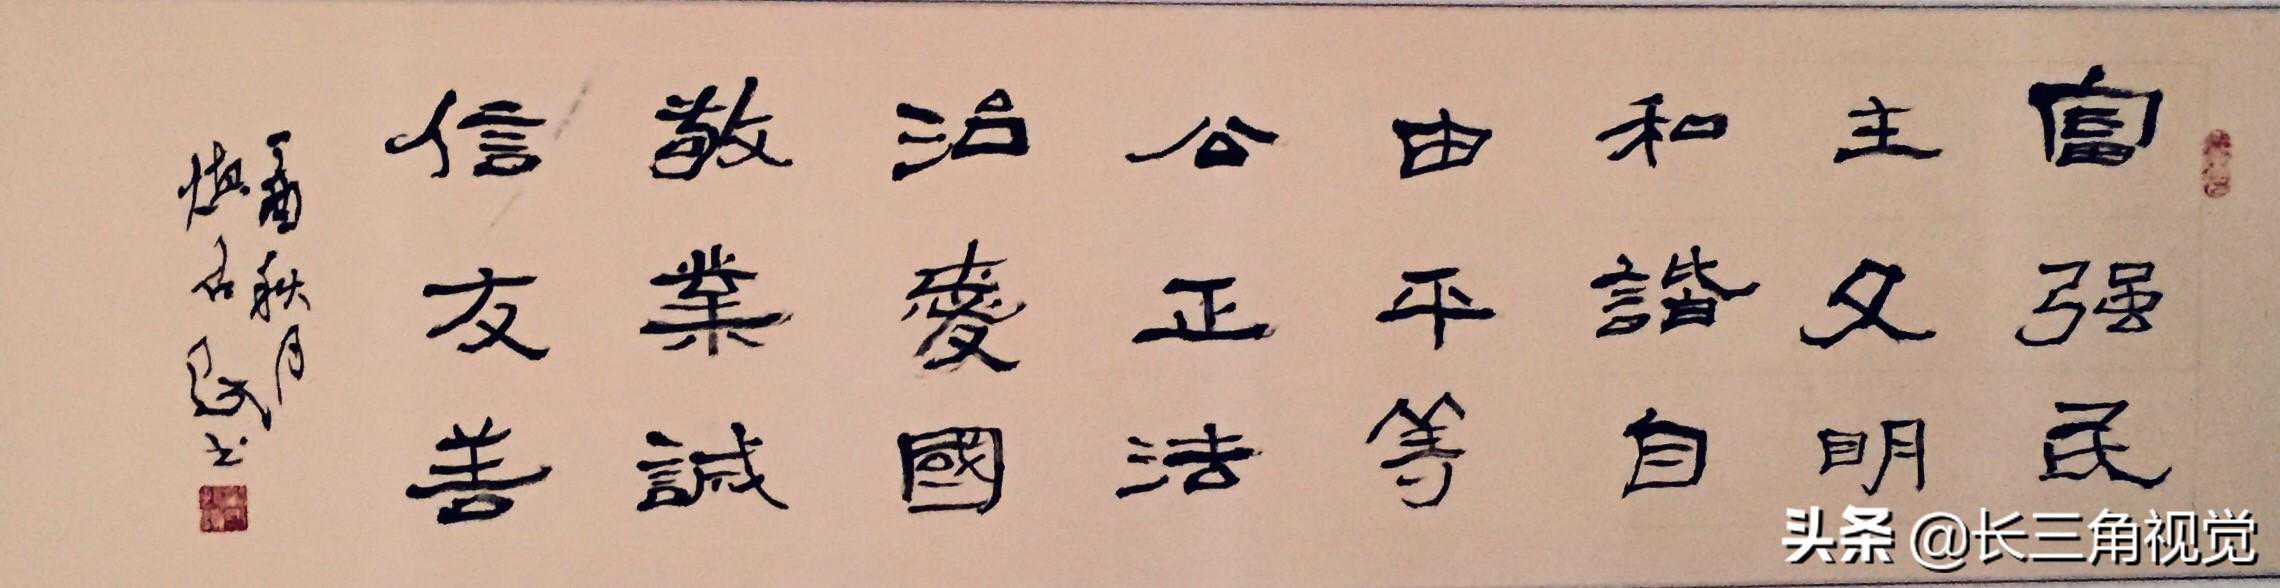 富强民
主文明
和諧自
由平等
公正法
治愛國
敬業誠
信友善
秋月
民书
头条 @长三角视觉